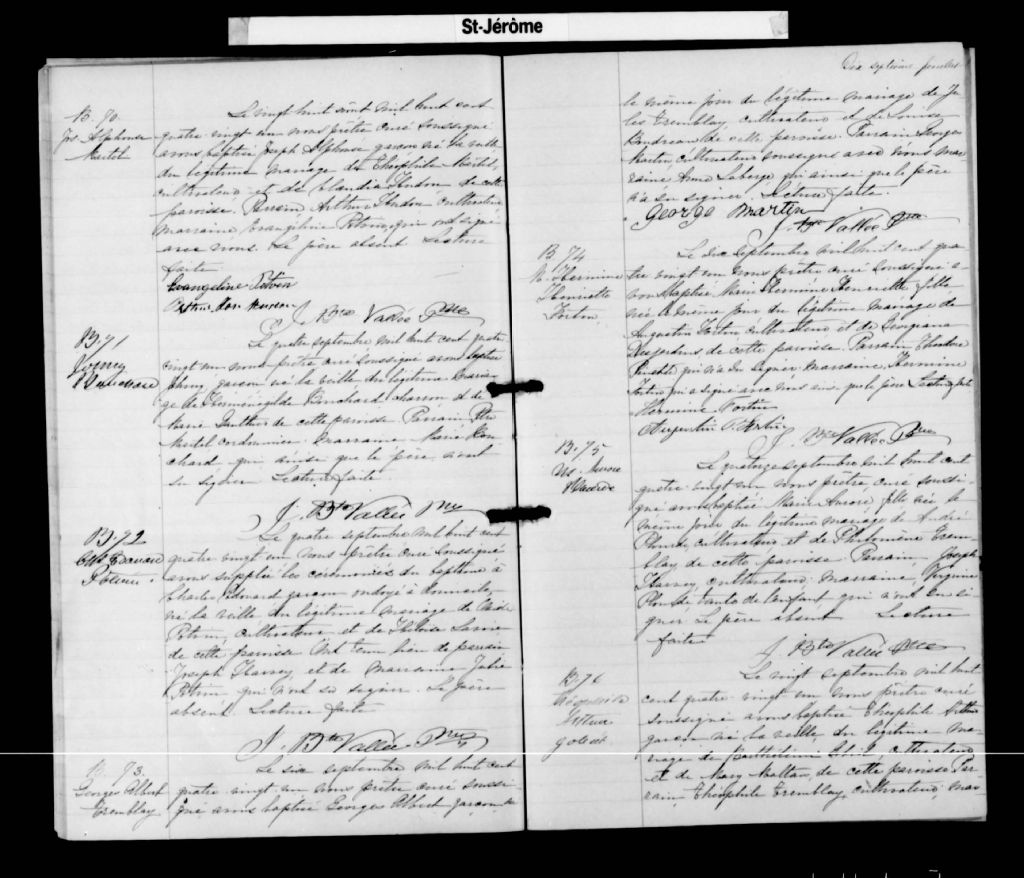 St-Jérôme
B. 70.
Jos Alphonse
Martel
Le vingt huit août mil huit cent
quatre vingt un nous prêtre curé soussigné
avons baptisé Joseph Alphonse garçon né la veille
du légitime mariage de Théophile Martel,
cultivateur et de Claudia Hudon de cette
paroisse. Parrain Arthur Hudon cultivateur
marraine Evangéline Potvin, qui ont signé
avec nous. Le père absent Lecture
faite
Evangeline Potvin
J. Bte Vallée Ptre
B. 71
Le quatre septembre mil huit cent quatre
vingt un nous prêtre curé soussigné avons baptisé
garçon né la veille du légitime maria-
ge de Herménégilde Bouchard charron et de
Marie Gauthier de cette paroisse. Parrain
Martel cordonnier marraine Marie Bou
chard qui ainsi que le père n'ont
su signer Lecture faite.
J. Bte Vallée Ptre
B. 72
Potvin.
Le quatre septembre mil huit cent
quatre vingt un nous prêtre curé soussigné
avons suppléé les cérémonies du baptême à
Charles Edouard garçon ondoyé à domicile,
né la veille du légitime mariage de
Potvin, cultivateur et de
de cette paroisse Ont tenu lieu de parrain
Joseph Harvey et de marraine Julie
Potvin qui n'ont su signer. Le père
absent. Lecture faite
J. Bte Vallée Ptre
B. 73.
Georges Albert
Tremblay
Le six septembre mil huit cent
quatre vingt un nous prêtre curé soussi-
gné avons baptisé Georges Albert garçon né
Dix septième feuillet
le même jour du légitime mariage de Ju
les Tremblay cultivateur et de Louise
Boudreau de cette paroisse. Parrain George
Martin cultivateur soussigné avec nous mar
raine Anna Laberge qui ainsi que le père
n'a su signer. Lecture faite.
George Martin
J. Bte Vallée Ptre
B 74
M. Hermine
Henriette
Fortin
Le dix septembre mil huit cent qua
tre vingt un nous prêtre curé soussigné a-
vons baptisé Marie Hermine Henriette fille
née le même jour du légitime mariage de
Augustin Fortin cultivateur et de Georgiana
Desjardins de cette paroisse. Parrain Théodore
qui n'a su signer marraine Hermine
Fortin qui a signé avec nous ainsi que le père Lecture faite
Hermine Fortin
Augustin Fortin
J. Bte Vallée Ptre
B. 75
M. Aurore
Le quatorze septembre mil huit cent
quatre vingt un nous prêtre curé soussi-
gné avons baptisé Marie Aurore, fille née le
même jour du légitime mariage de André
Plourde, cultivateur, et de Philomène Trem-
blay de cette paroisse Parrain, Joseph
Harvey cultivateur marraine, Virginie
Plourde, tante de l'enfant qui n'ont su si
gner. Le père absent. Lecture
faite
J. Bte Vallée Ptre
B. 76
Le vingt septembre mil huit
cent quatre vingt un nous prêtre curé
soussigné avons baptisé Théophile Arthur
garçon né la veille du légitime ma-
riage de cultivateur
et de Mary Maltais, de cette paroisse Par-
rain Théophile Tremblay, cultivateur, mar-